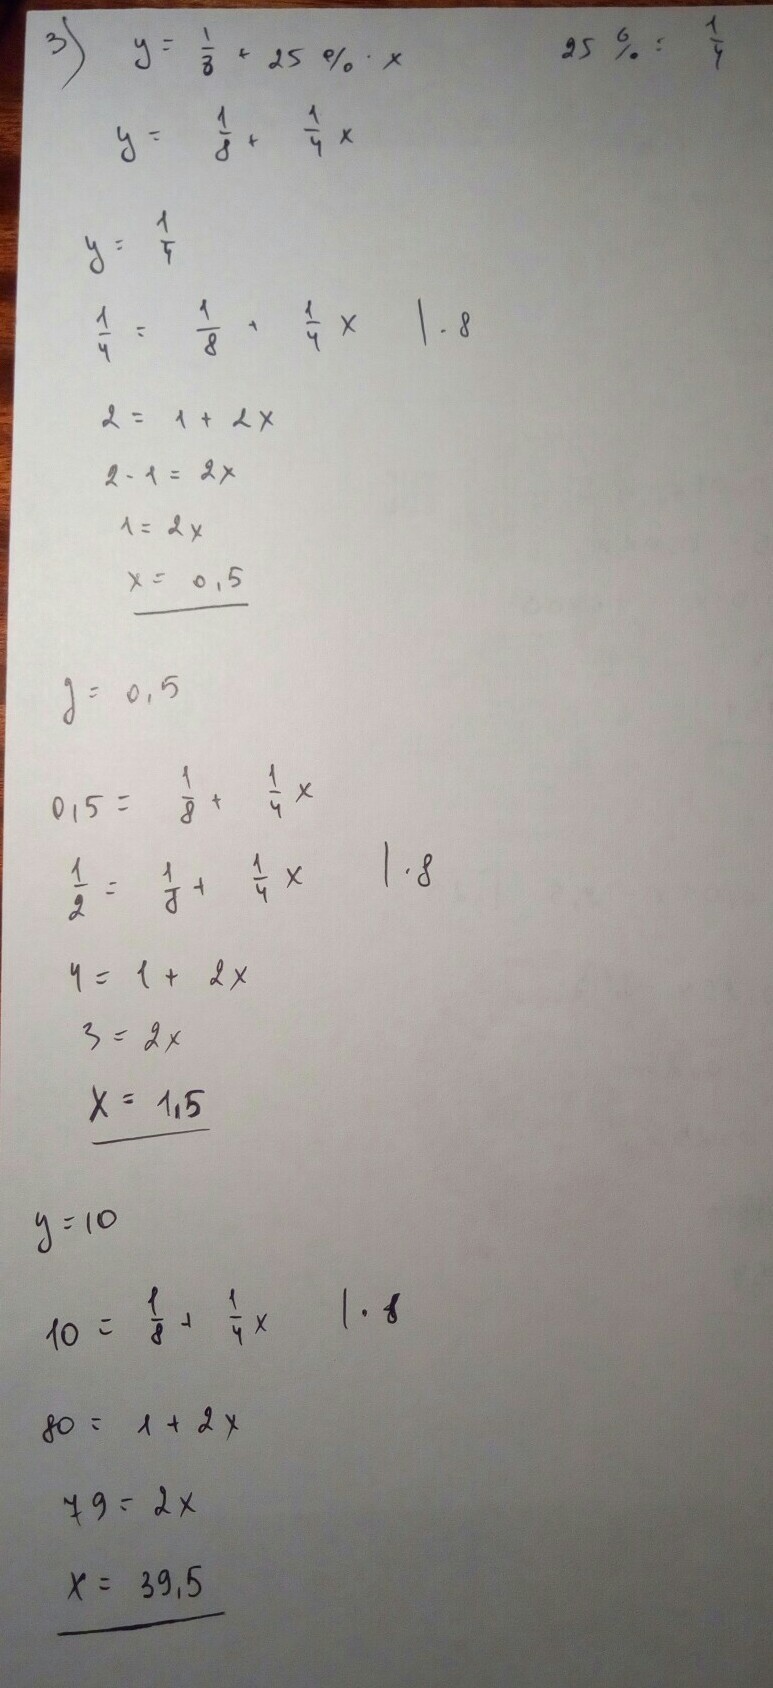 3) y = 1/8 + 25 % · x 25 % = 1/4
y = 1/8 + 1/4 x
y = 1/4
1/4 = 1/8 + 1/4 x | · 8
2 = 1 + 2x
2 - 1 = 2x
1 = 2x
x = 0,5
y = 0,5
0,5 = 1/8 + 1/4 x
1/2 = 1/8 + 1/4 x | · 8
4 = 1 + 2x
3 = 2x
x = 1,5
y = 10
10 = 1/8 + 1/4 x | · 8
80 = 1 + 2x
79 = 2x
x = 39,5